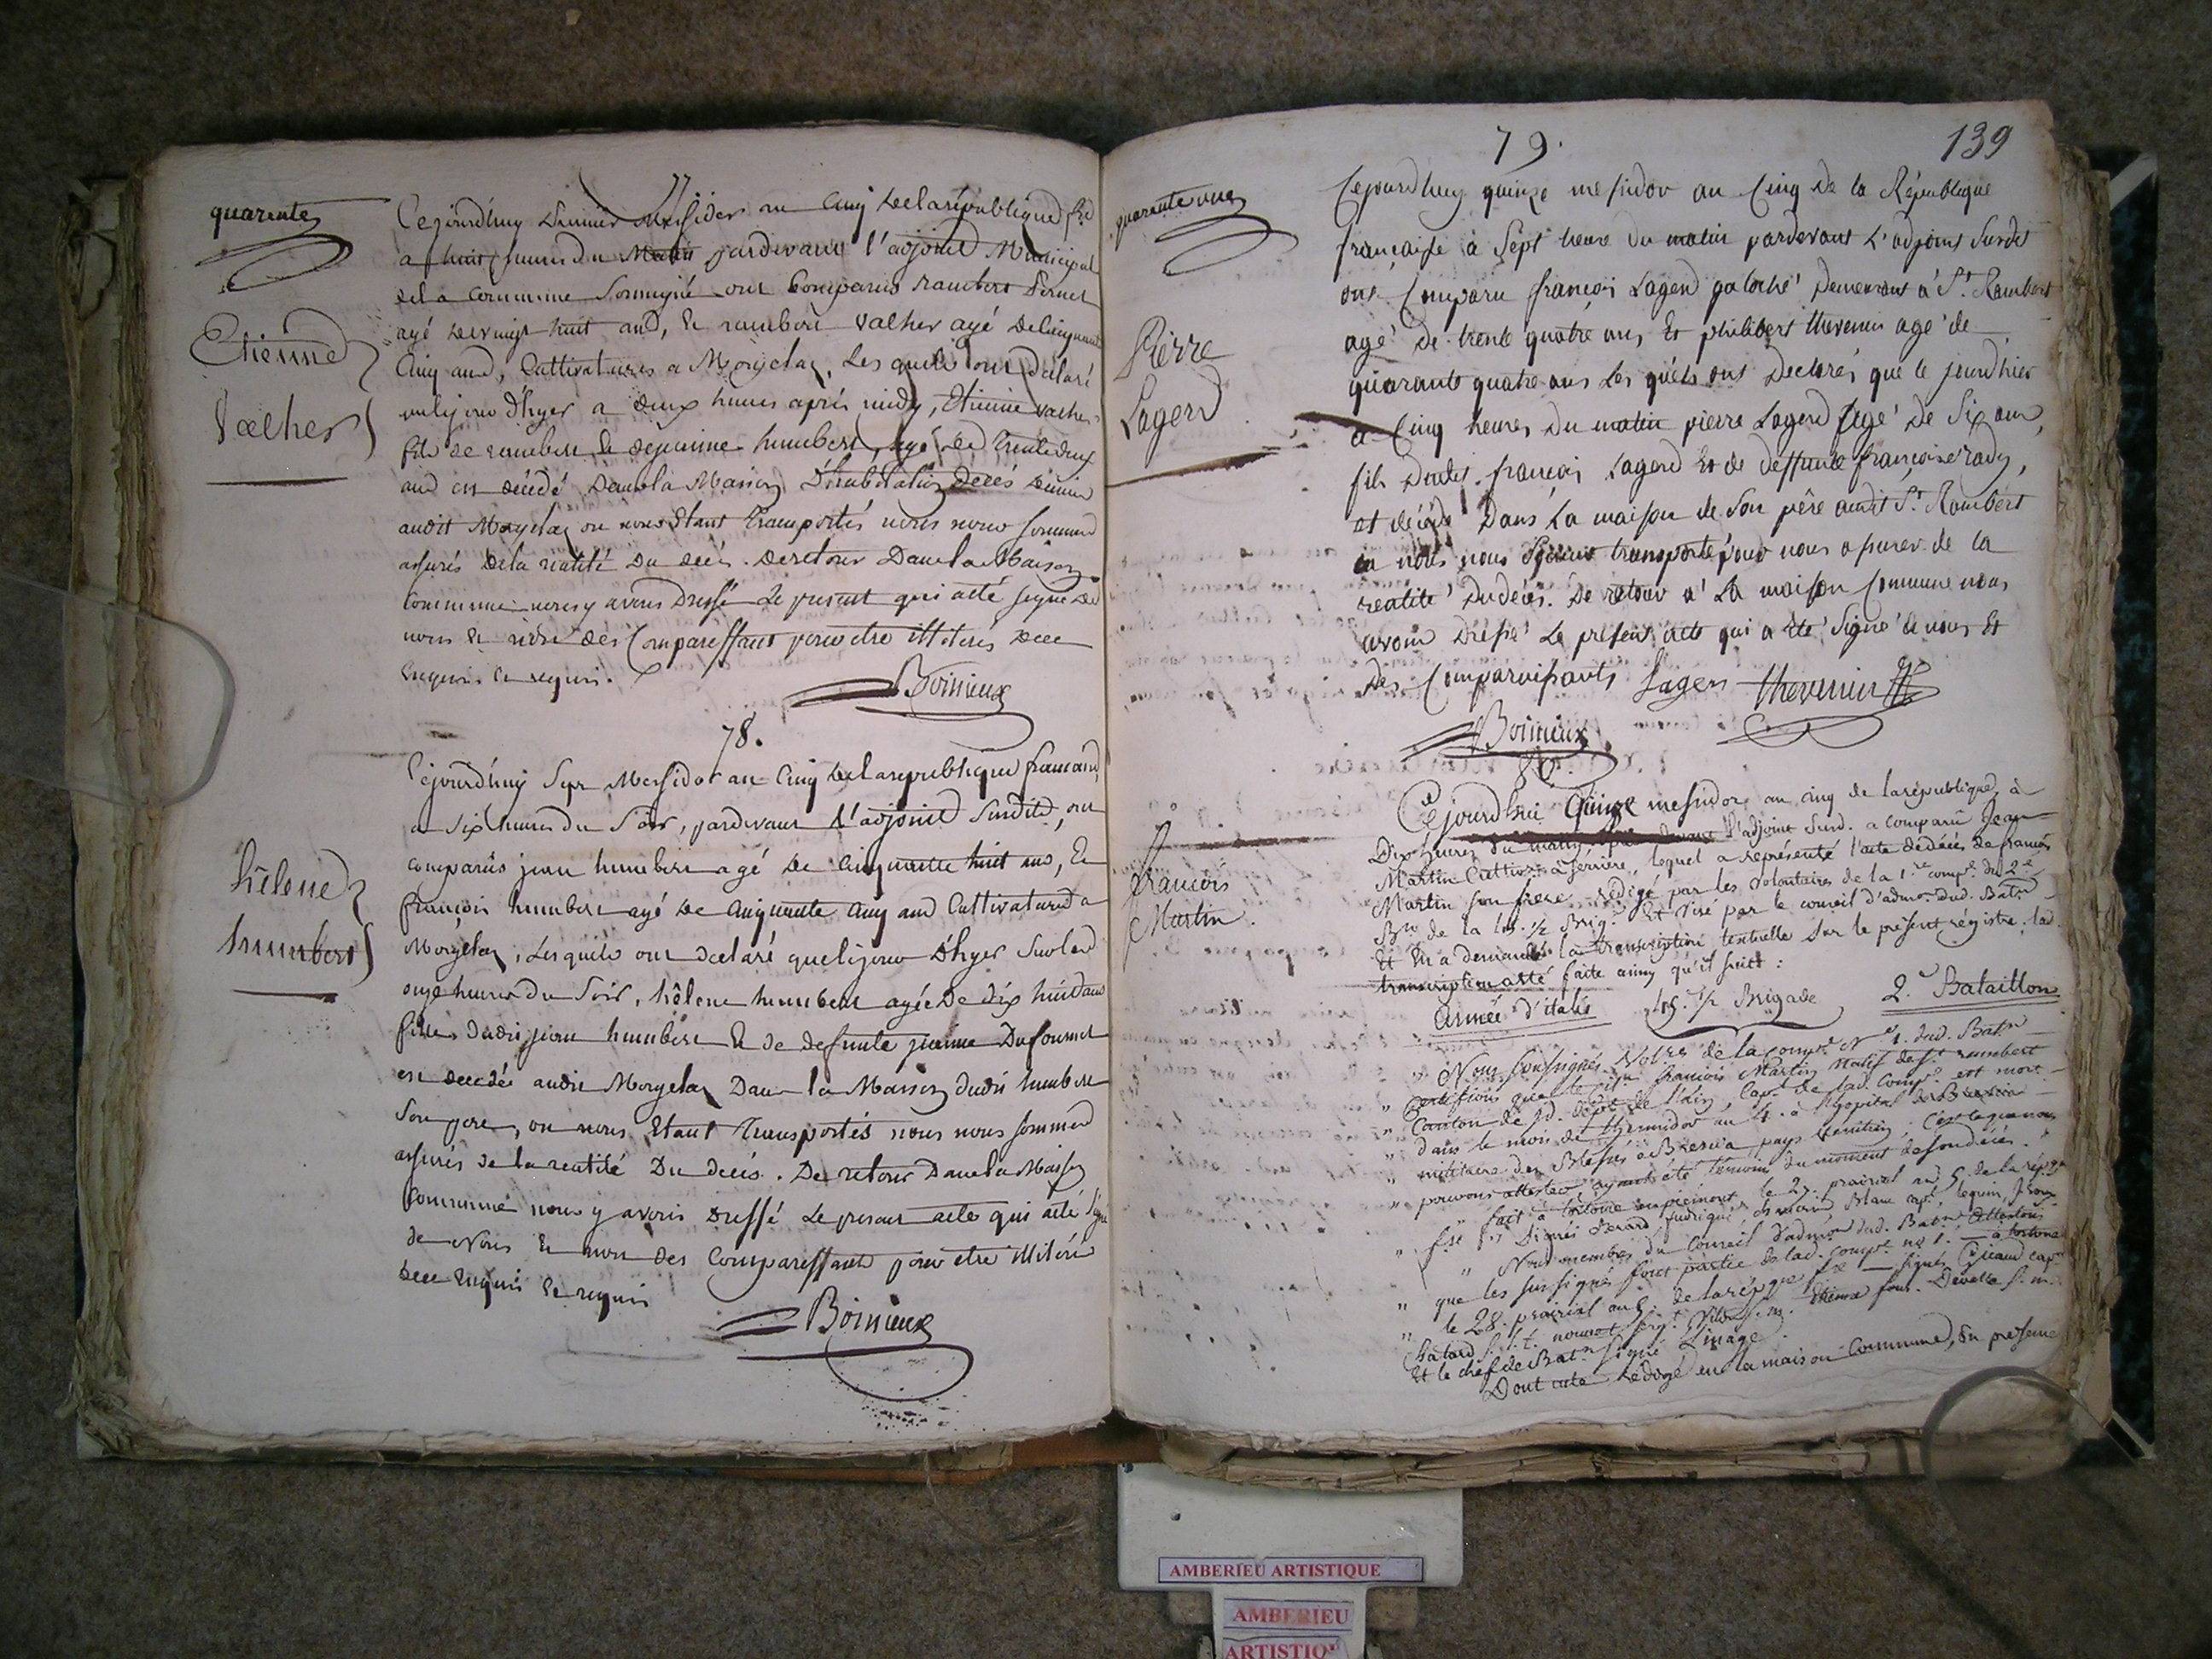 quarente
77
Cejourd'huy Premier Messidor an Cinq de la république fse
a huit heures du Matin pardevant l'adjoint Municipal
de la Commune soussigné ont Comparus rambert
agé de vingt huit ans, & rambert Valher agé de Cinquante
Etienne
Valher
Cinq ans, Cultivateurs a Morgelaz, Les quels ont déclaré
que le jour d'hyer a deux heures après midy, Etienne valher
fils de rambert & de jeanne humbert, agé de trente deux
ans est décédé Dans la Maison D'habitation
audit Morgelaz ou nous Etant transportés nous nous sommes
assurés de la réalité du décès. De retour Dans la Maison
Commune nous y avons Dressé Le present qui a été signé de
nous & non des Comparessant pour etre illiterés de ce
Enquis & requis.
Boinieux
78.
Cejourd'huy Sept Messidor an Cinq de la republique francaise
a Six heures du Soir, pardevant L'adjoint Susdit, ont
comparûs jean humbert agé de Cinquante huit ans, &
hèlene
humbert
françois humbert agé de Cinquante Cinq ans Cultivateurs a
Morgelaz, Lesquels ont declaré que le jour D'hyer Sur les
onze heures du Soir, hêlene humbert agée de dix huit ans
fille dudit jean humbert & de defunte jeanne Dufournet
est decedée audit Morgelaz Dans la Maison dudit humbert
Son pere, ou nous Etant Transportés nous nous sommes
assurés de la réalité Du decès. De retour Dans la Maison
Commune nous y avons Dressé Le present acte qui a été signé
de Nous & non des Comparessants pour etre illiterés
de ce Enquis & requis
Boinieux
79.
139
quarente une
Cejourdhuy quinze messidor an Cinq de la République
française à Sept heure du matin pardevant L'adjoint Susdit
ont Comparu françois Lagerd galoché Demeurant à St. Rambert
agé de trente quatre ans, Et philibert thevenin agé de
Pierre
Lagerd
quarante quatre ans Les quels ont Declarés que le jourdhier
a Cinq heures du matin pierre Lagerd agé de Six ans,
fils dudit françois Lagerd Et de deffunte françoise
et décédé Dans La maison de Son père audit St. Rambert
ou nous nous transporté pour nous assurer de la
réalité du décès. De retour a La maison Commune nous
avons Dressé Le present acte qui a été Signé de nous Et
des Comparoissants Lagers thevenin
Boinieux
80.
Cejourd'hui Quinze messidor an cinq de la république, à
Dix heures du matin, par devant l'adjoint Susd. a comparu Jean
Martin Cultivr. à Serriere, lequel a représenté l'acte de décés de françois
françois
Martin
Martin son frere, redigé par les volontaires de la 1re compe. du 2e
Bon de la 105. 1/2 Brige. Et visé par le conseil d'admon. dud. Batn
Et En a demandé la transcription textuelle Sur le présent régistre, lad.
transcription a été faite ainsy qu'il suit:
Armée d'italie 105. 1/2 Brigade 2. Bataillon
" Nous Soussignés Volres de la compe. No 1. dud. Batn
" Certifions que le françois Martin natif de St. rambert
" Canton de jd. dépt. de l'ain, Capl. de lad. Compe. est mort
" dans le mois de thermidor an 4. à l'hopital
" militaire des Blessés à Brescia pays Venitien. C'est ce que nous
" pouvons attester ayant été témoins du moment de son décès.
" fait à tortone en piémont le 27. prairial an 5. de la répque
" Nous membres du conseil d'admon dud. Batn attestons
" que les sussignés font partie de lad. compe. no 1. — à tortone
" le 28. prairial an 5. de la répque fse — signés
Et le chef de Batn signé Linage.
Dont acte redigé en la maison Commune, En présence
AMBERIEU ARTISTIQUE
AMBERIEU
ARTISTIQ